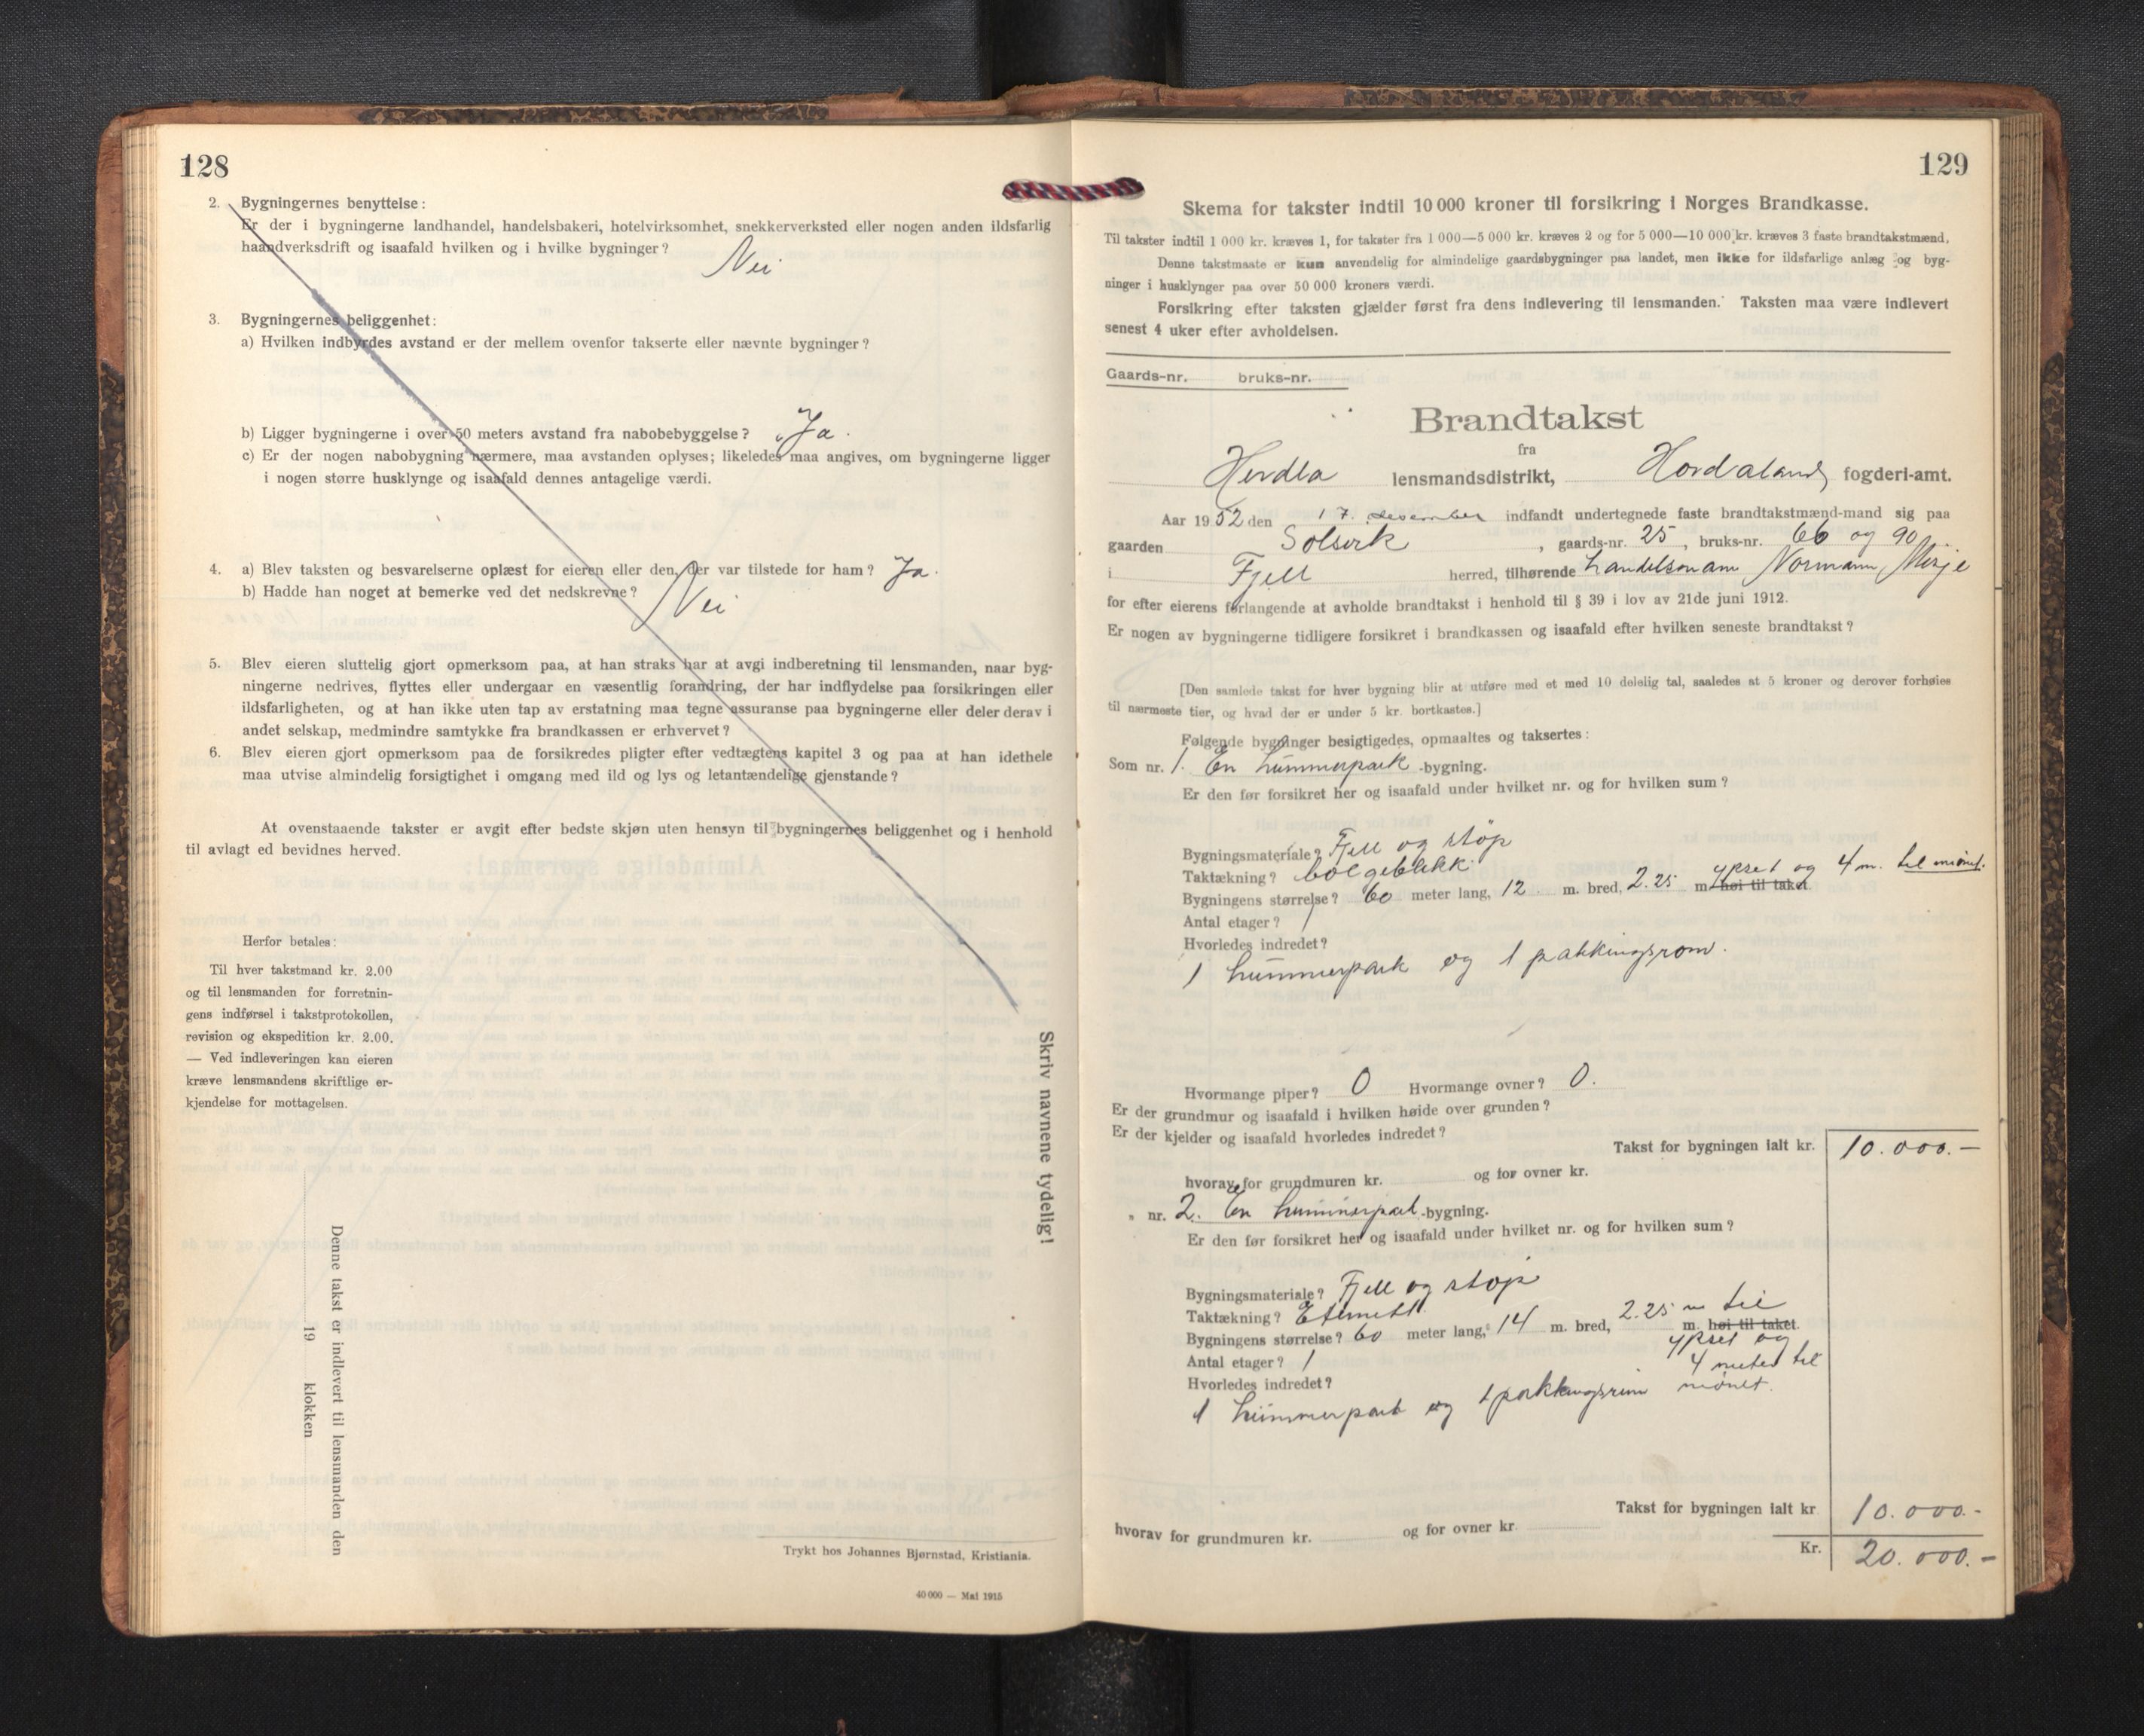 128
2. Bygningernes benyttelse:
Er der i bygningerne landhandel, handelsbakeri, hotelvirksomhet, snekkerverksted eller nogen anden ildsfarlig
haandverksdrift og isaafald hvilken og i hvilke bygninger?
Nei
3. Bygningernes beliggenhet:
a) Hvilken indbyrdes avstand er der mellem ovenfor takserte eller nævnte bygninger?
b) Ligger bygningerne i over 50 meters avstand fra nabobebyggelse? Ja.
c) Er der nogen nabobygning nærmere, maa avstanden oplyses; likeledes maa angives, om bygningerne ligger
i nogen større husklynge og isaafald dennes antagelige værdi.
4. a) Blev taksten og besvarelserne oplæst for eieren eller den, der var tilstede for ham? Ja.
b) Hadde han noget at bemerke ved det nedskrevne? Nei
5. Blev eieren sluttelig gjort opmerksom paa, at han straks har at avgi indberetning til lensmanden, naar byg-
ningerne nedrives, flyttes eller undergaar en væsentlig forandring, der har indflydelse paa forsikringen eller
ildsfarligheten, og at han ikke uten tap av erstatning maa tegne assuranse paa bygningerne eller deler derav i
andet selskap, medmindre samtykke fra brandkassen er erhvervet?
6. Blev eieren gjort opmerksom paa de forsikredes pligter efter vedtægtens kapitel 3 og paa at han idethele
maa utvise almindelig forsigtighet i omgang med ild og lys og letantændelige gjenstande?
At ovenstaaende takster er avgit efter bedste skjøn uten hensyn til bygningernes beliggenhet og i henhold
til avlagt ed bevidnes herved.
Herfor betales:
Til hver takstmand kr. 2.00
og til lensmanden for forretnin-
gens indførsel i takstprotokollen,
revision og ekspedition kr. 2.00.
— Ved indleveringen kan eieren
kræve lensmandens skriftlige er-
kjendelse for mottagelsen.
Skriv navnene tydelig!
Denne takst er indlevert til lensmanden den
19 klokken
Trykt hos Johannes Bjørnstad, Kristiania.
40 000 — Mai 1915
129
Skema for takster indtil 10 000 kroner til forsikring i Norges Brandkasse.
Til takster indtil 1 000 kr. kræves 1, for takster fra 1 000—5 000 kr. kræves 2 og for 5 000—10 000 kr. kræves 3 faste brandtakstmænd.
Denne takstmaate er kun anvendelig for almindelige gaardsbygninger paa landet, men ikke for ildsfarlige anlæg og byg-
ninger i husklynger paa over 50 000 kroners værdi.
Forsikring efter taksten gjælder først fra dens indlevering til lensmanden. Taksten maa være indlevert
senest 4 uker efter avholdelsen.
Gaards-nr. bruks-nr.
Brandtakst
fra
Herdla lensmandsdistrikt, Hordaland fogderi-amt.
Aar 1952 den 17. desember indfandt undertegnede faste brandtakstmænd-mand sig paa
gaarden Solsvik, gaards-nr. 25, bruks-nr. 66 og 90
i Fjell herred, tilhørende handelsmann Normann Misje
for efter eierens forlangende at avholde brandtakst i henhold til § 39 i lov av 21de juni 1912.
Er nogen av bygningerne tidligere forsikret i brandkassen og isaafald efter hvilken seneste brandtakst?
[Den samlede takst for hver bygning blir at utføre med et med 10 delelig tal, saaledes at 5 kroner og derover forhøies
til nærmeste tier, og hvad der er under 5 kr. bortkastes.]
Følgende bygninger besigtigedes, opmaaltes og taksertes:
Som nr. 1. En hummerpark -bygning.
Er den før forsikret her og isaafald under hvilket nr. og for hvilken sum?
Bygningsmateriale? Fjell og støp
Taktækning? bølgeblikk
Bygningens størrelse? 60 meter lang, 12 m. bred, 2.25 m høi til taket. ypset og 4 m. til mønet.
Antal etager? 1
Hvorledes indredet?
1 hummerpark og 1 pakkingsrom.
Hvormange piper? 0 Hvormange ovner? 0.
Er der grundmur og isaafald i hvilken høide over grunden?
Er der kjelder og isaafald hvorledes indredet?
Takst for bygningen ialt kr. 10.000.-
hvorav for grundmuren kr. og for ovner kr.
" nr. 2. En hummerpark -bygning.
Er den før forsikret her og isaafald under hvilket nr. og for hvilken sum?
Bygningsmateriale? Fjell og støp
Taktækning? Eternitt.
Bygningens størrelse? 60 meter lang, 14 m. bred, 2.25 m til m. høi til taket.
ypset og
Antal etager? 1 4 meter til
Hvorledes indredet? mønet.
1 hummerpark og 1 pakkingsrum
Takst for bygningen ialt kr 10.000.-
hvorav for grundmuren kr. og for ovner kr.
Kr. 20.000.-